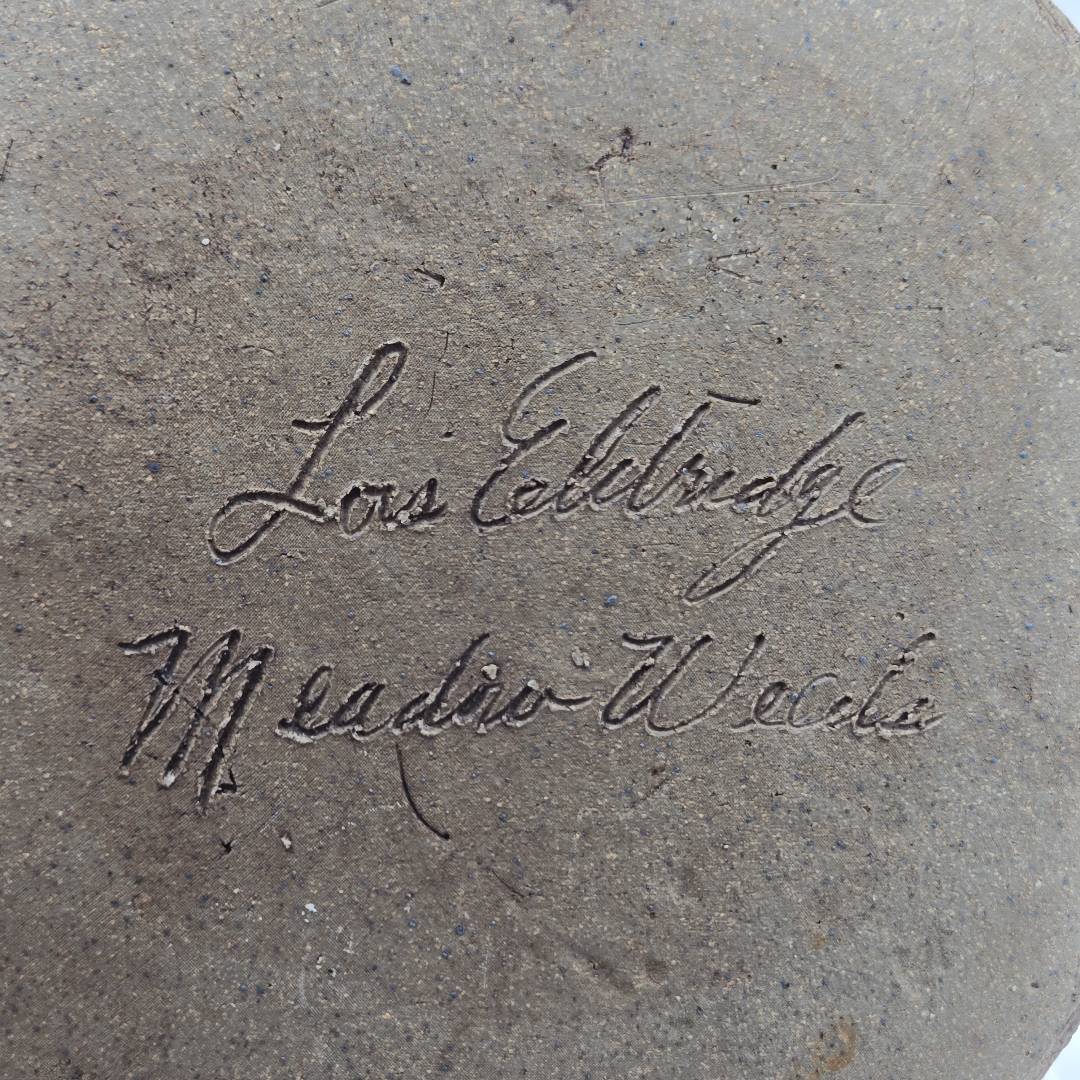 Lois Eldridge
Meadow Weeds